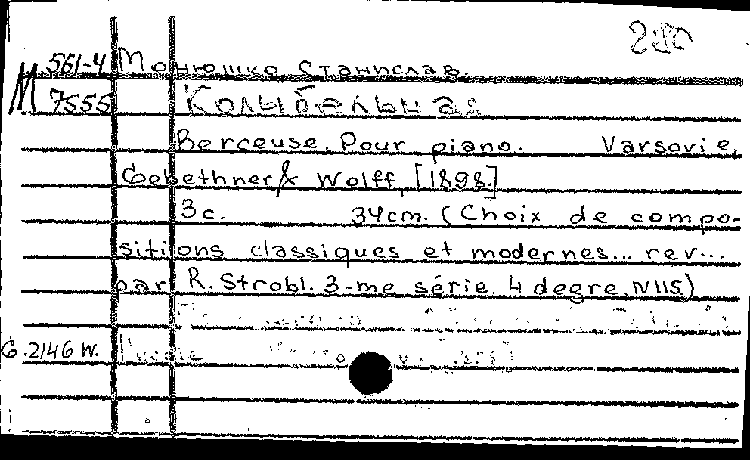 561-4 Монюшко Станислав.
М 7555 Колыбельная
Berceuse. Pour piano. Varsovie,
Gebethner & Wolff, [1898.]
3 с. 34cm. (Choix de compo-
sitions classiques et modernes... rev...
par R. Strobl. 3-me série 4 degre, N 115)
G. 2146 W.